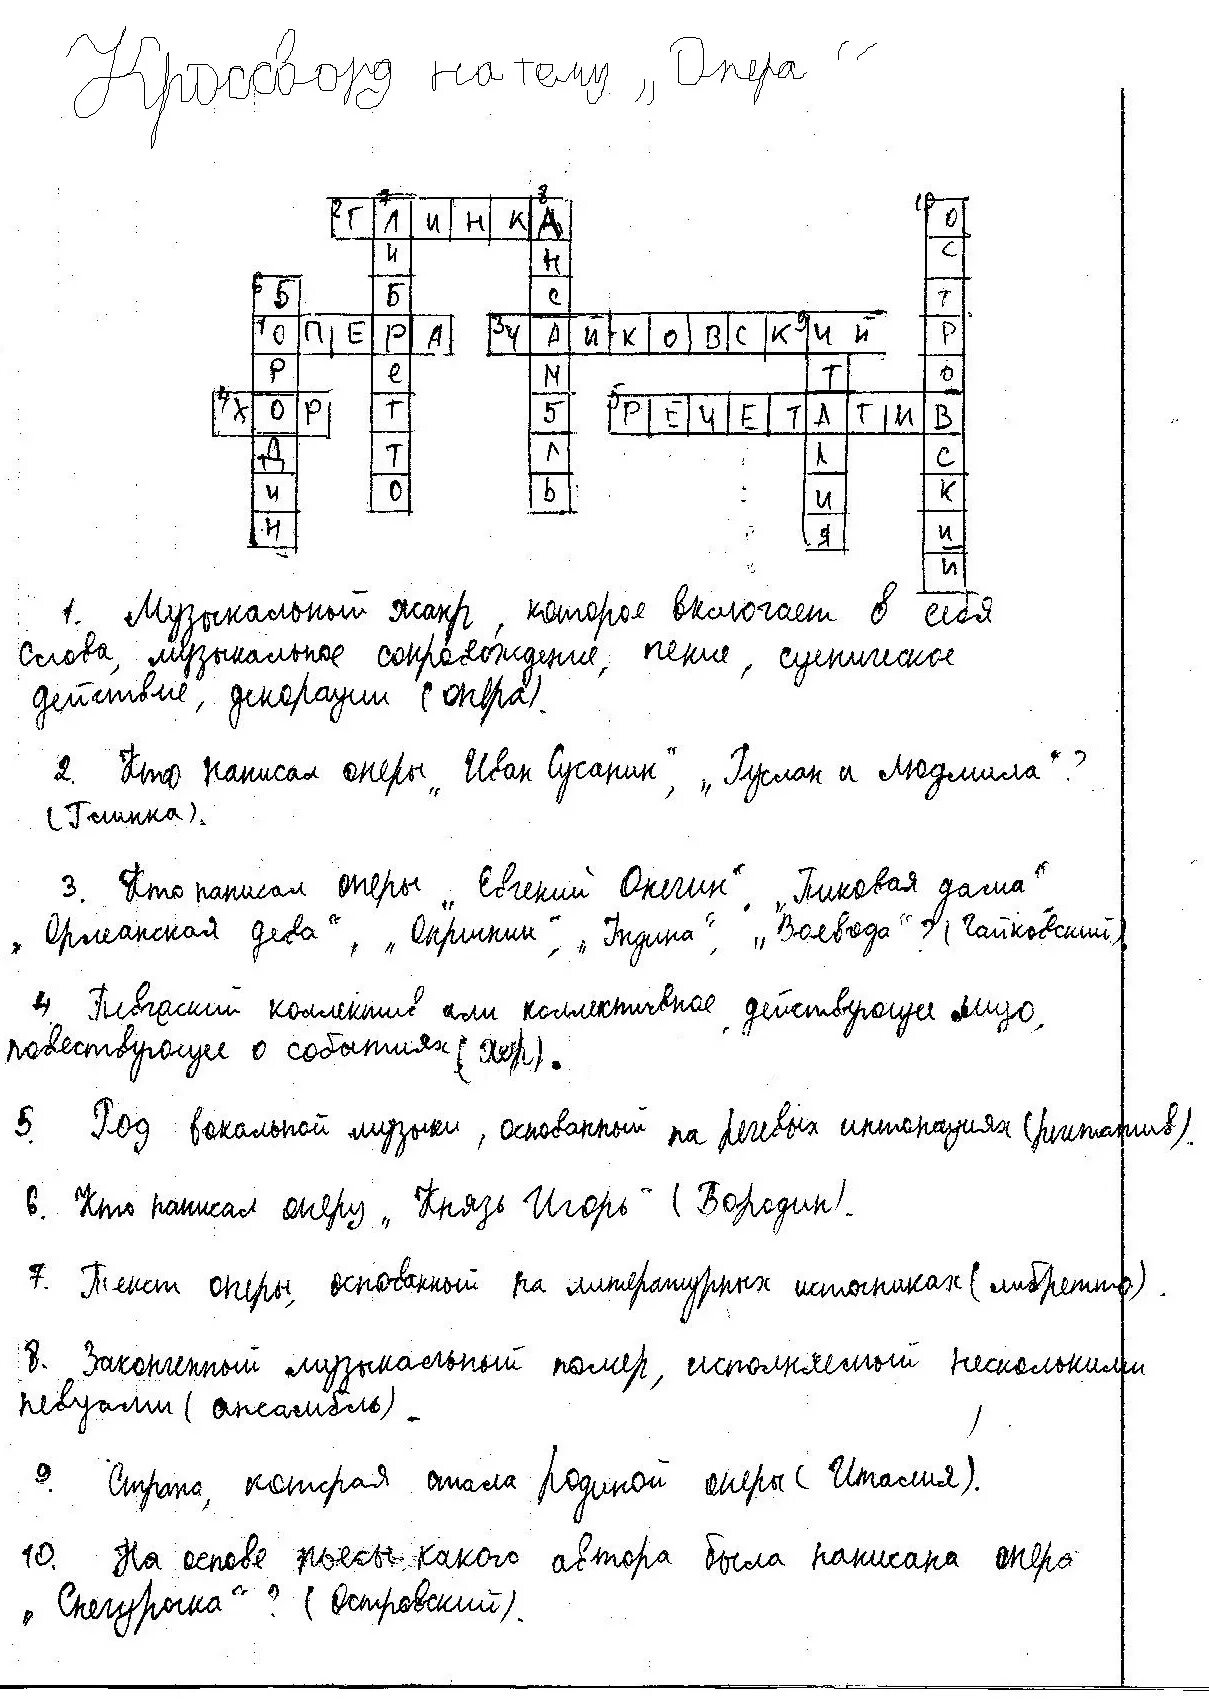 Кроссворд на тему „Опера“
2 7 8 10
Г Л И Н К А О
И Н С
6 Б Б С Т
1 О П Е Р А 3 Ч А Й К О В С К 9 И Й Р
Р Е М Т О
4 Х О Р Т Б 5 Р Е Ч Е Т А Т И В
Д Т Л Л С
И О Ь И К
Н Я И
Й
1. Музыкальный жанр, которое включает в себя
слова, музыкальное сопровождение, пение, сценическое
действие, декорации (опера).
2. Кто написал оперы „Иван Сусанин“, „Руслан и Людмила“?
(Глинка).
3. Кто написал оперы „Евгений Онегин“, „Пиковая дама“,
„Орлеанская дева“, „Опричник“, „Ундина“, „Воевода“? (Чайковский)
4 Певческий коллектив или коллективное действующее лицо,
повествующее о событиях (хор).
5. Род вокальной музыки, основанный на речевых интонациях (речитатив).
6. Кто написал оперу „Князь Игорь“ (Бородин).
7. Текст оперы, основанный на литературных источниках (либретто).
8. Законченный музыкальный номер, исполняемый несколькими
певцами (ансамбль).
9. Страна, которая стала родиной оперы (Италия).
10. На основе пьесы какого автора была написана опера
„Снегурочка“? (Островский).